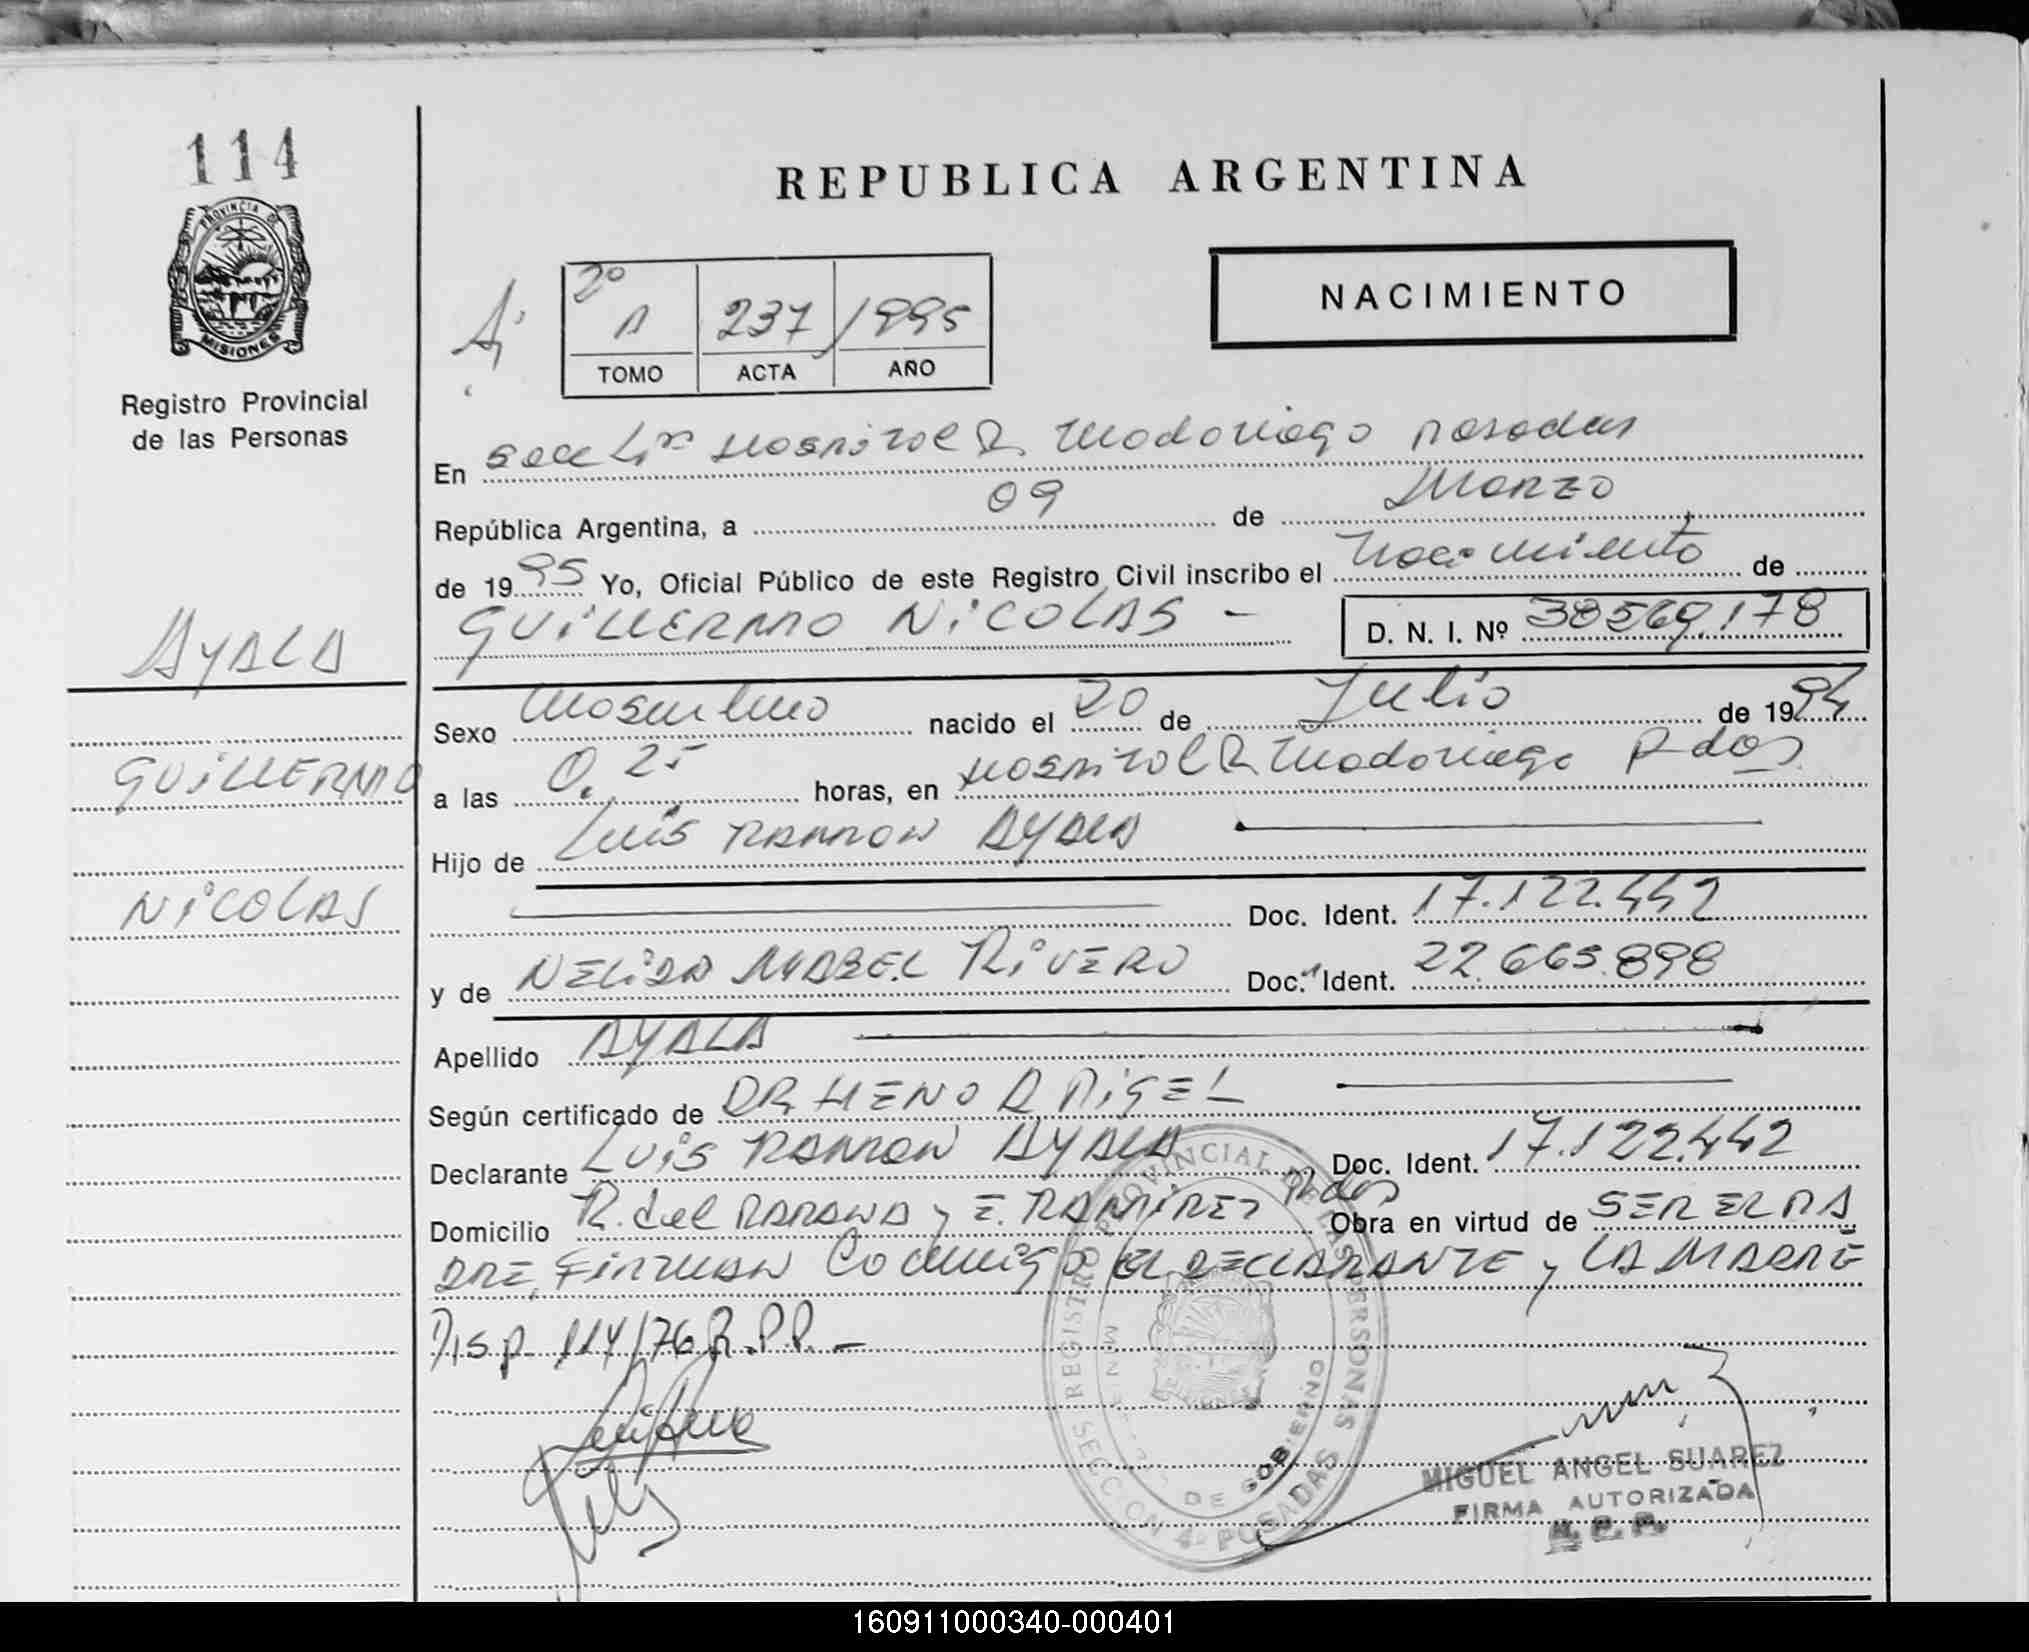 114
PROVINCIA DE
MISIONES
Registro Provincial
de las Personas
REPUBLICA ARGENTINA
NACIMIENTO
2º
A 237 1995
TOMO ACTA AÑO
En Secc 4ª Hospital R. Madariaga Posadas
República Argentina, a 09 de Marzo
de 1995 Yo, Oficial Público de este Registro Civil inscribo el Nacimiento de
GUILLERMO NICOLAS -
D. N. I. Nº 38569.178
AYALA
GUILLERMO
NICOLAS
Sexo Masculino nacido el 20 de Julio de 1994
a las 0,25 horas, en Hospital R Madariaga Pdas
Hijo de Luis RAMON AYALA
Doc. Ident. 17.122.442
y de NELIDA MABEL RIVERO Doc. Ident. 22.665.898
Apellido AYALA
Según certificado de DR HENO R RIGEL
Declarante LUIS RAMON AYALA Doc. Ident. 17.122.442
Domicilio R. del PARANA y E. RAMIREZ Pdas Obra en virtud de SER EL PA
DRE, FIRMAN Conmigo EL DECLARANTE y LA MADRE
Disp. 114/76 R.P.P. -
REGISTRO PROVINCIAL DE LAS PERSONAS
DE GOBIERNO
SECCION 4ª POSADAS
MIGUEL ANGEL SUAREZ
FIRMA AUTORIZADA
R. P. P.
160911000340-000401